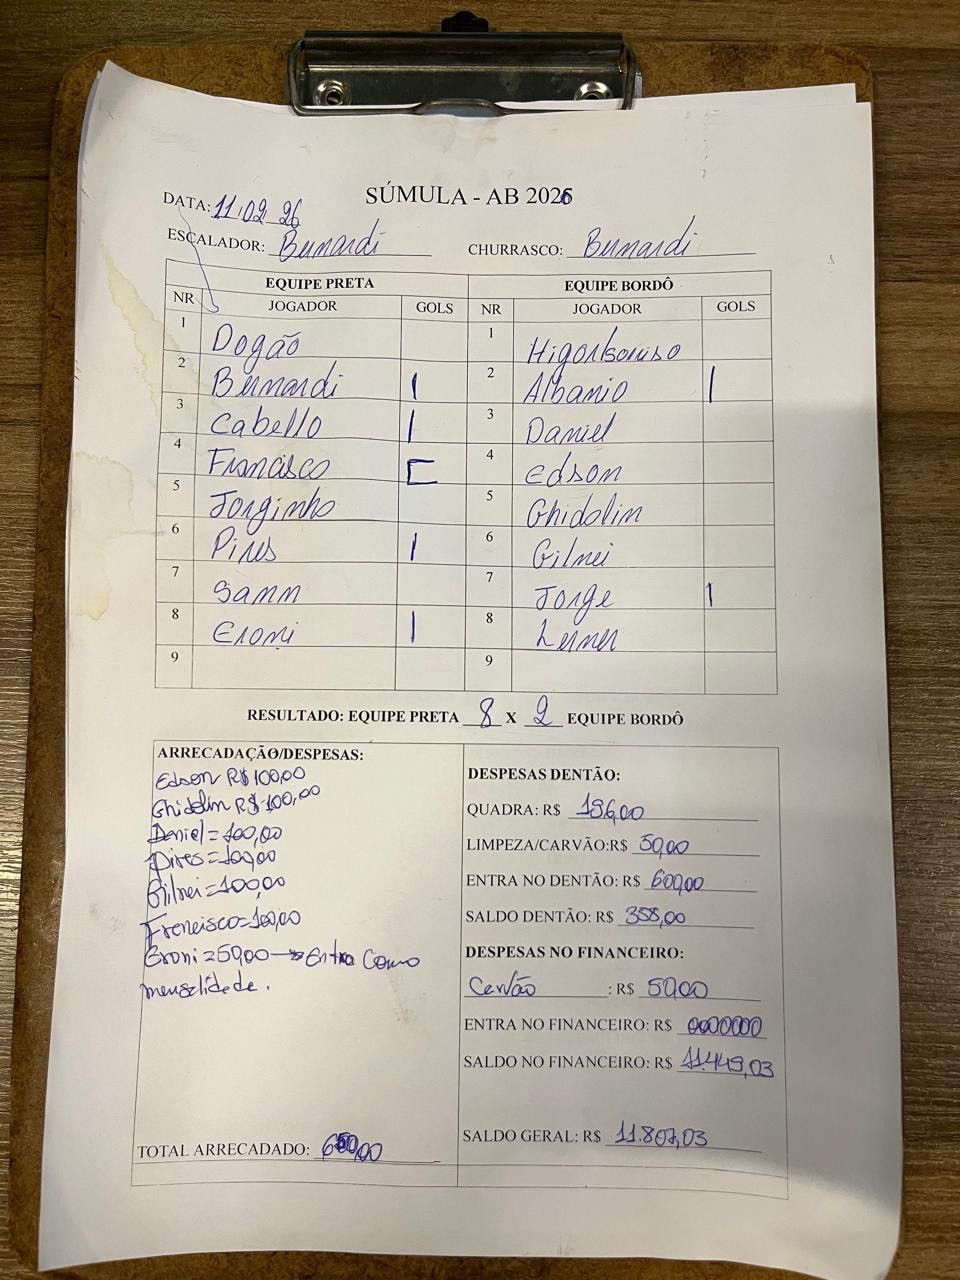 SÚMULA - AB 2026
DATA: 11.02.26
ESCALADOR: Bernardi CHURRASCO: Bernardi
EQUIPE PRETA EQUIPE BORDÔ
NR JOGADOR GOLS NR JOGADOR GOLS
1 Dogão 1
2 Bernardi | 2 Albanio |
3 Cabello | 3 Daniel
4 Francisco 4 Edson
5 Jorginho 5 Ghidolin
6 Pires | 6 Gilnei
7 Sann 7 Jorge |
8 Eroni | 8 Lerner
9 9
RESULTADO: EQUIPE PRETA 8 X 2 EQUIPE BORDÔ
ARRECADAÇÃO/DESPESAS:
Edson R$100,00
Ghidolin R$100,00
Daniel=100,00
Pires=100,00
Gilnei=100,00
Francisco=100,00
Eroni=50,00 → Entra Como
mensalidade.
TOTAL ARRECADADO:
DESPESAS DENTÃO:
QUADRA: R$ 196,00
LIMPEZA/CARVÃO:R$ 50,00
ENTRA NO DENTÃO: R$ 600,00
SALDO DENTÃO: R$ 358,00
DESPESAS NO FINANCEIRO:
Cartão : R$ 50,00
ENTRA NO FINANCEIRO: R$
SALDO NO FINANCEIRO: R$ 11.449,03
SALDO GERAL: R$ 11.807,03